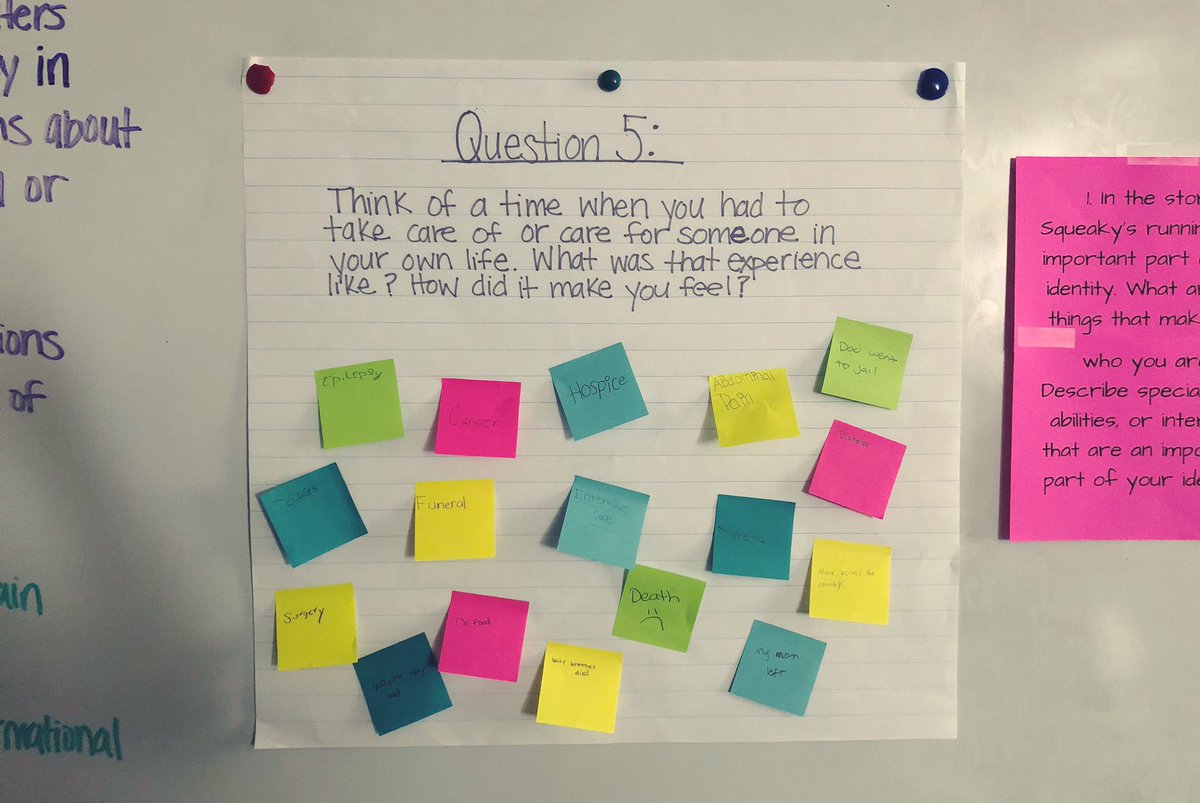 ters
y in
ns about
or
ions
of
ain
mational
Question 5:
Think of a time when you had to
take care of or care for someone in
your own life. What was that experience
like? How did it make you feel?
Epilepsy
Cancer
Hospice
Abdominal
Pain
Dad went
to jail
Funeral
Entensive
care
Move across the
country
Surgery
No food
Death
:(
baby brother
died
my mom
left
1. In the stor
Squeaky's runnin
important part
identity. What ar
things that mak
who you are
Describe specia
abilities, or inter
that are an impo
part of your ide